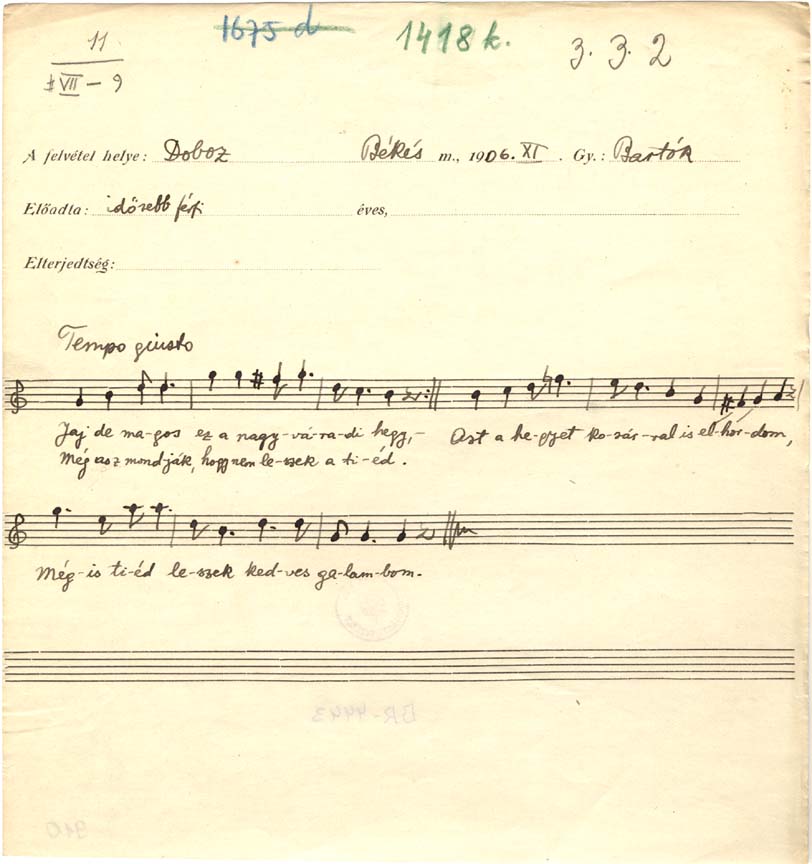 11
VII – 9
1675 d
1418 k.
3. 3. 2
A felvétel helye: Doboz Békés m., 1906. XI. Gy.: Bartók
Előadta: idősebb férfi éves,
Elterjedtség:
Tempo giusto
Jaj de ma-gos ez a nagy-vá-ra-di hegy,- Azt a he-gyet ko-sár-ral is el-hor-dom,
Még asz mondják, hogy nem le-szek a ti-éd.
Még-is ti-éd le-szek ked-ves ga-lam-bom.
BR-4443
910